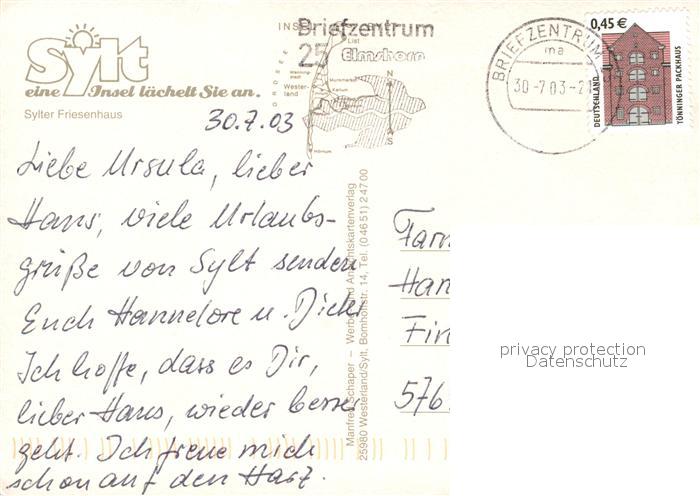 Sylt
eine Insel lächelt Sie an.
Sylter Friesenhaus
Briefzentrum
25
Elmshorn
List
Westerland
NORDSEE
N
S
BRIEFZENTRUM
30-7.03-2
0,45 €
DEUTSCHLAND
TÖNNINGER PACKHAUS
30.7.03
Liebe Ursula, lieber
Hans, viele Urlaubs-
grüße von Sylt senden
Euch Hannelore u. Dieter
Ich hoffe, dass es Dir,
lieber Hans, wieder besser
geht. Ich freue mich
schon auf den Harz.
Manfred Schaper – Werbe- und Ansichtskartenverlag
25980 Westerland/Sylt, Bomhoffstr. 14, Tel. (0 46 51) 2 47 00
Fam
Han
Fin
576
privacy protection
Datenschutz